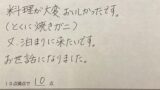 料理が大変おいしかったです。
(とくに焼きガニ)
又、泊まりに来たいです。
お世話になりました。
10点満点で 10 点